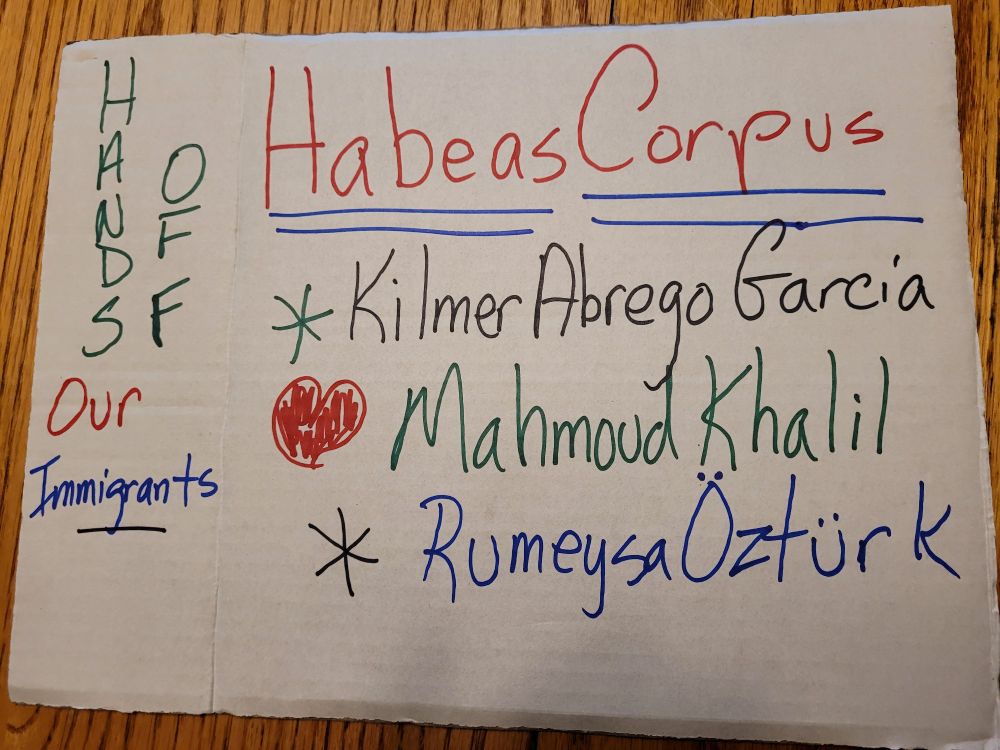 HANDS
OFF
Our
Immigrants
Habeas Corpus
* Kilmer Abrego Garcia
Mahmoud Khalil
* Rumeysa Öztürk